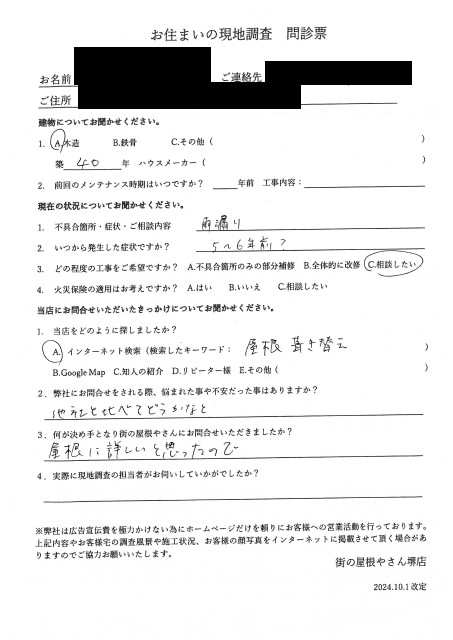 お住まいの現地調査 問診票
お名前 ご連絡先
ご住所
建物についてお聞かせください。
1. A.木造 B.鉄骨 C.その他( )
築 40 年 ハウスメーカー( )
2. 前回のメンテナンス時期はいつですか? 年前 工事内容:
現在の状況についてお聞かせください。
1. 不具合箇所・症状・ご相談内容 雨漏り
2. いつから発生した症状ですか? 5〜6年前?
3. どの程度の工事をご希望ですか? A.不具合箇所のみの部分補修 B.全体的に改修 C.相談したい
4. 火災保険の適用はお考えですか? A.はい B.いいえ C.相談したい
当店にお問合せいただいたきっかけについてお聞かせください。
1. 当店をどのように探しましたか?
A. インターネット検索(検索したキーワード: 屋根 葺き替え )
B.Google Map C.知人の紹介 D.リピーター様 E.その他( )
2. 弊社にお問合せをされる際、悩まれた事や不安だった事はありますか?
他社と比べてどうかなと
3. 何が決め手となり街の屋根やさんにお問合せいただきましたか?
屋根に詳しいと思ったので
4. 実際に現地調査の担当者がお伺いしていかがでしたか?
※弊社は広告宣伝費を極力かけない為にホームページだけを頼りにお客様への営業活動を行っております。
上記内容やお客様宅の調査風景や施工状況、お客様の顔写真をインターネットに掲載させて頂く場合があ
りますのでご協力お願いいたします。
街の屋根やさん堺店
2024.10.1 改定